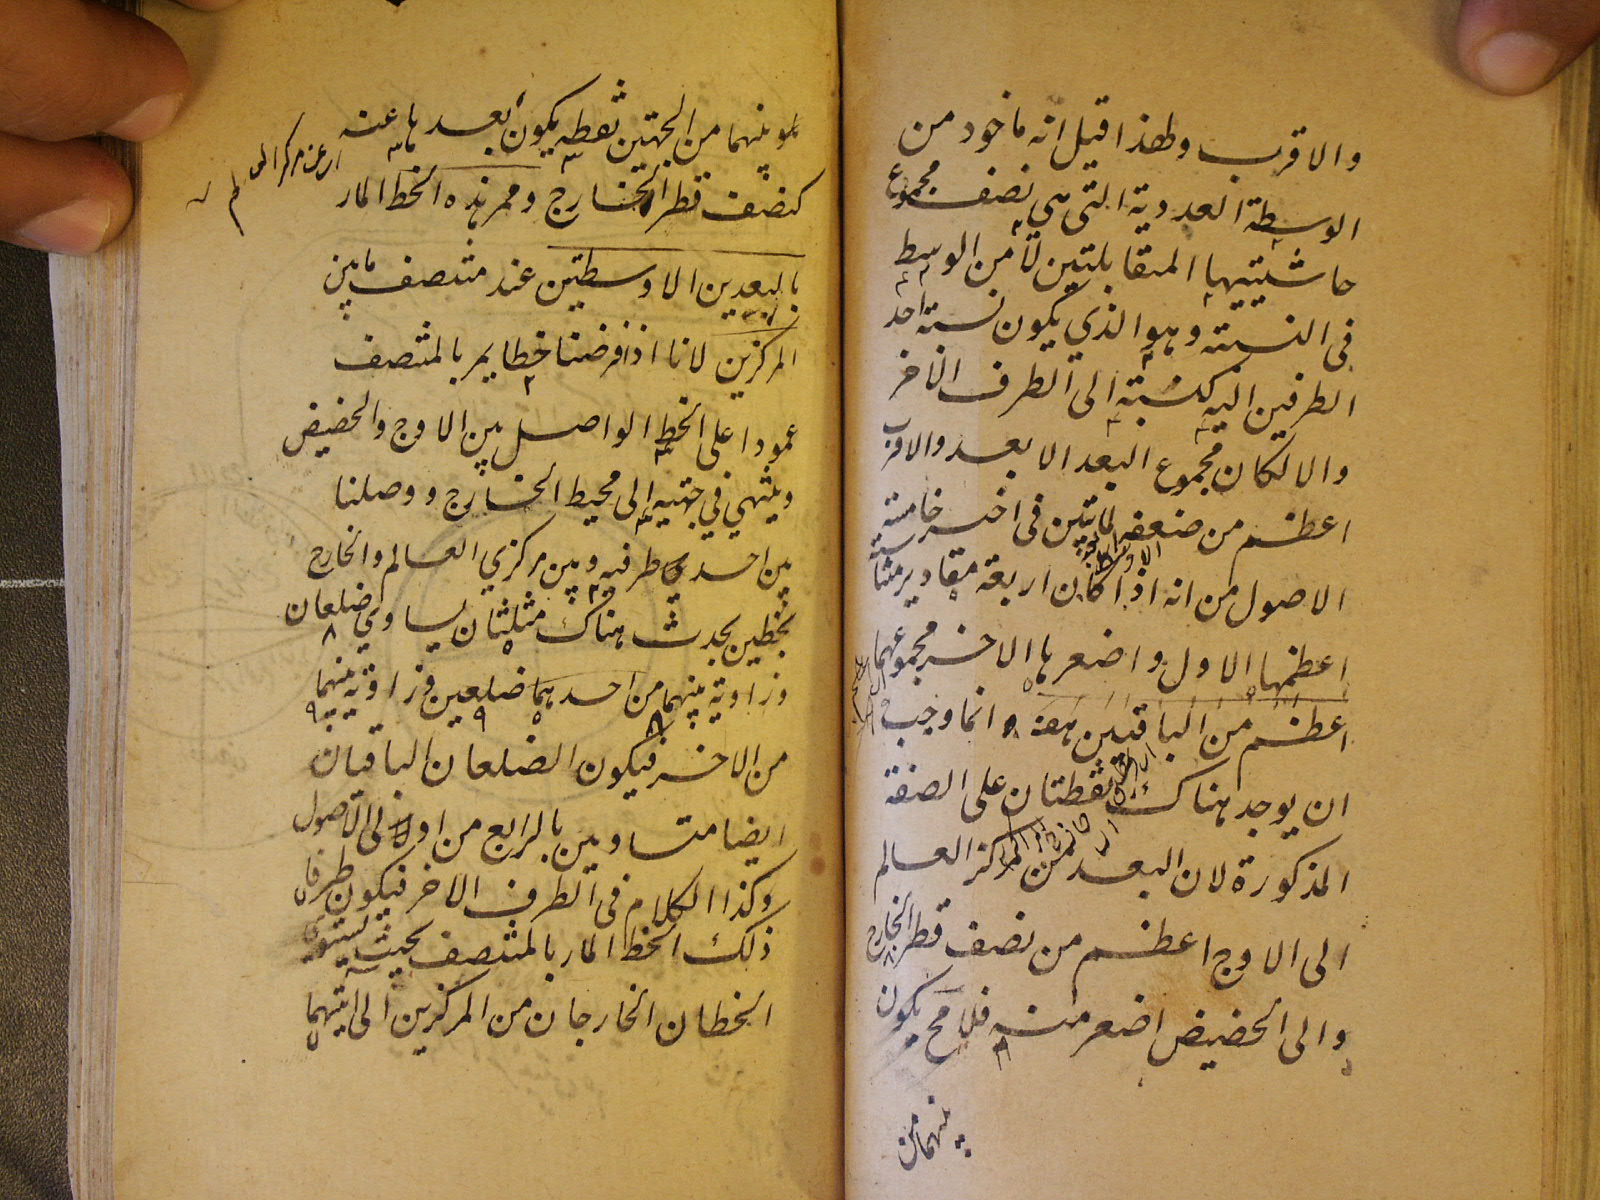 والاقرب ولهذا قيل انه ماخود من
الوسطة العددية التى هي نصف مجموع
حاشيتيها المتقابلتين لا من الوسط
فى النسبة وهو الذي يكون نسبة احد
الطرفين اليه كنسبته الى الطرف الآخر
والا لكان مجموع البعد الابعد والاقرب
اعظم من ضعفه لما تبين فى اخر خامسة
الاصول من انه اذا كان اربعة مقادير متناسبة
اعظمها الاول واصغرها الاخر مجموعهما
اعظم من الباقيين هف وانما وجب
ان يوجد هناك نقطتان على الصفة
المذكورة لان البعد من مركز العالم
الى الاوج اعظم من نصف قطر الخارج
والى الحضيض اصغر منه فلا مح يكون
بينهما من
بينهما من الجهتين نقطة يكون بعدها عنه
اى عن مركز العالم
كنصف قطر الخارج وممر هذه الخط المار
بالبعدين الاوسطين عند منتصف ما بين
المركزين لانا اذا فرضنا خطا يمر بالمنتصف
عمودا على الخط الواصل بين الاوج والحضيض
وينتهي في جهتيه الى محيط الخارج ووصلنا
بين احدي طرفيه وبين مركزي العالم والخارج
بخطين يحدث هناك مثلثان يساوي ضلعان
وزاوية بينهما من احدهما ضلعين وزاوية بينهما
من الاخر فيكون الضلعان الباقيان
ايضا متساويين بالرابع من اولى الاصول
وكذا الكلام فى الطرف الاخر فيكون طرفا
ذلك الخط المار بالمنتصف بحيث يستوي
الخطان الخارجان من المركزين اليهما